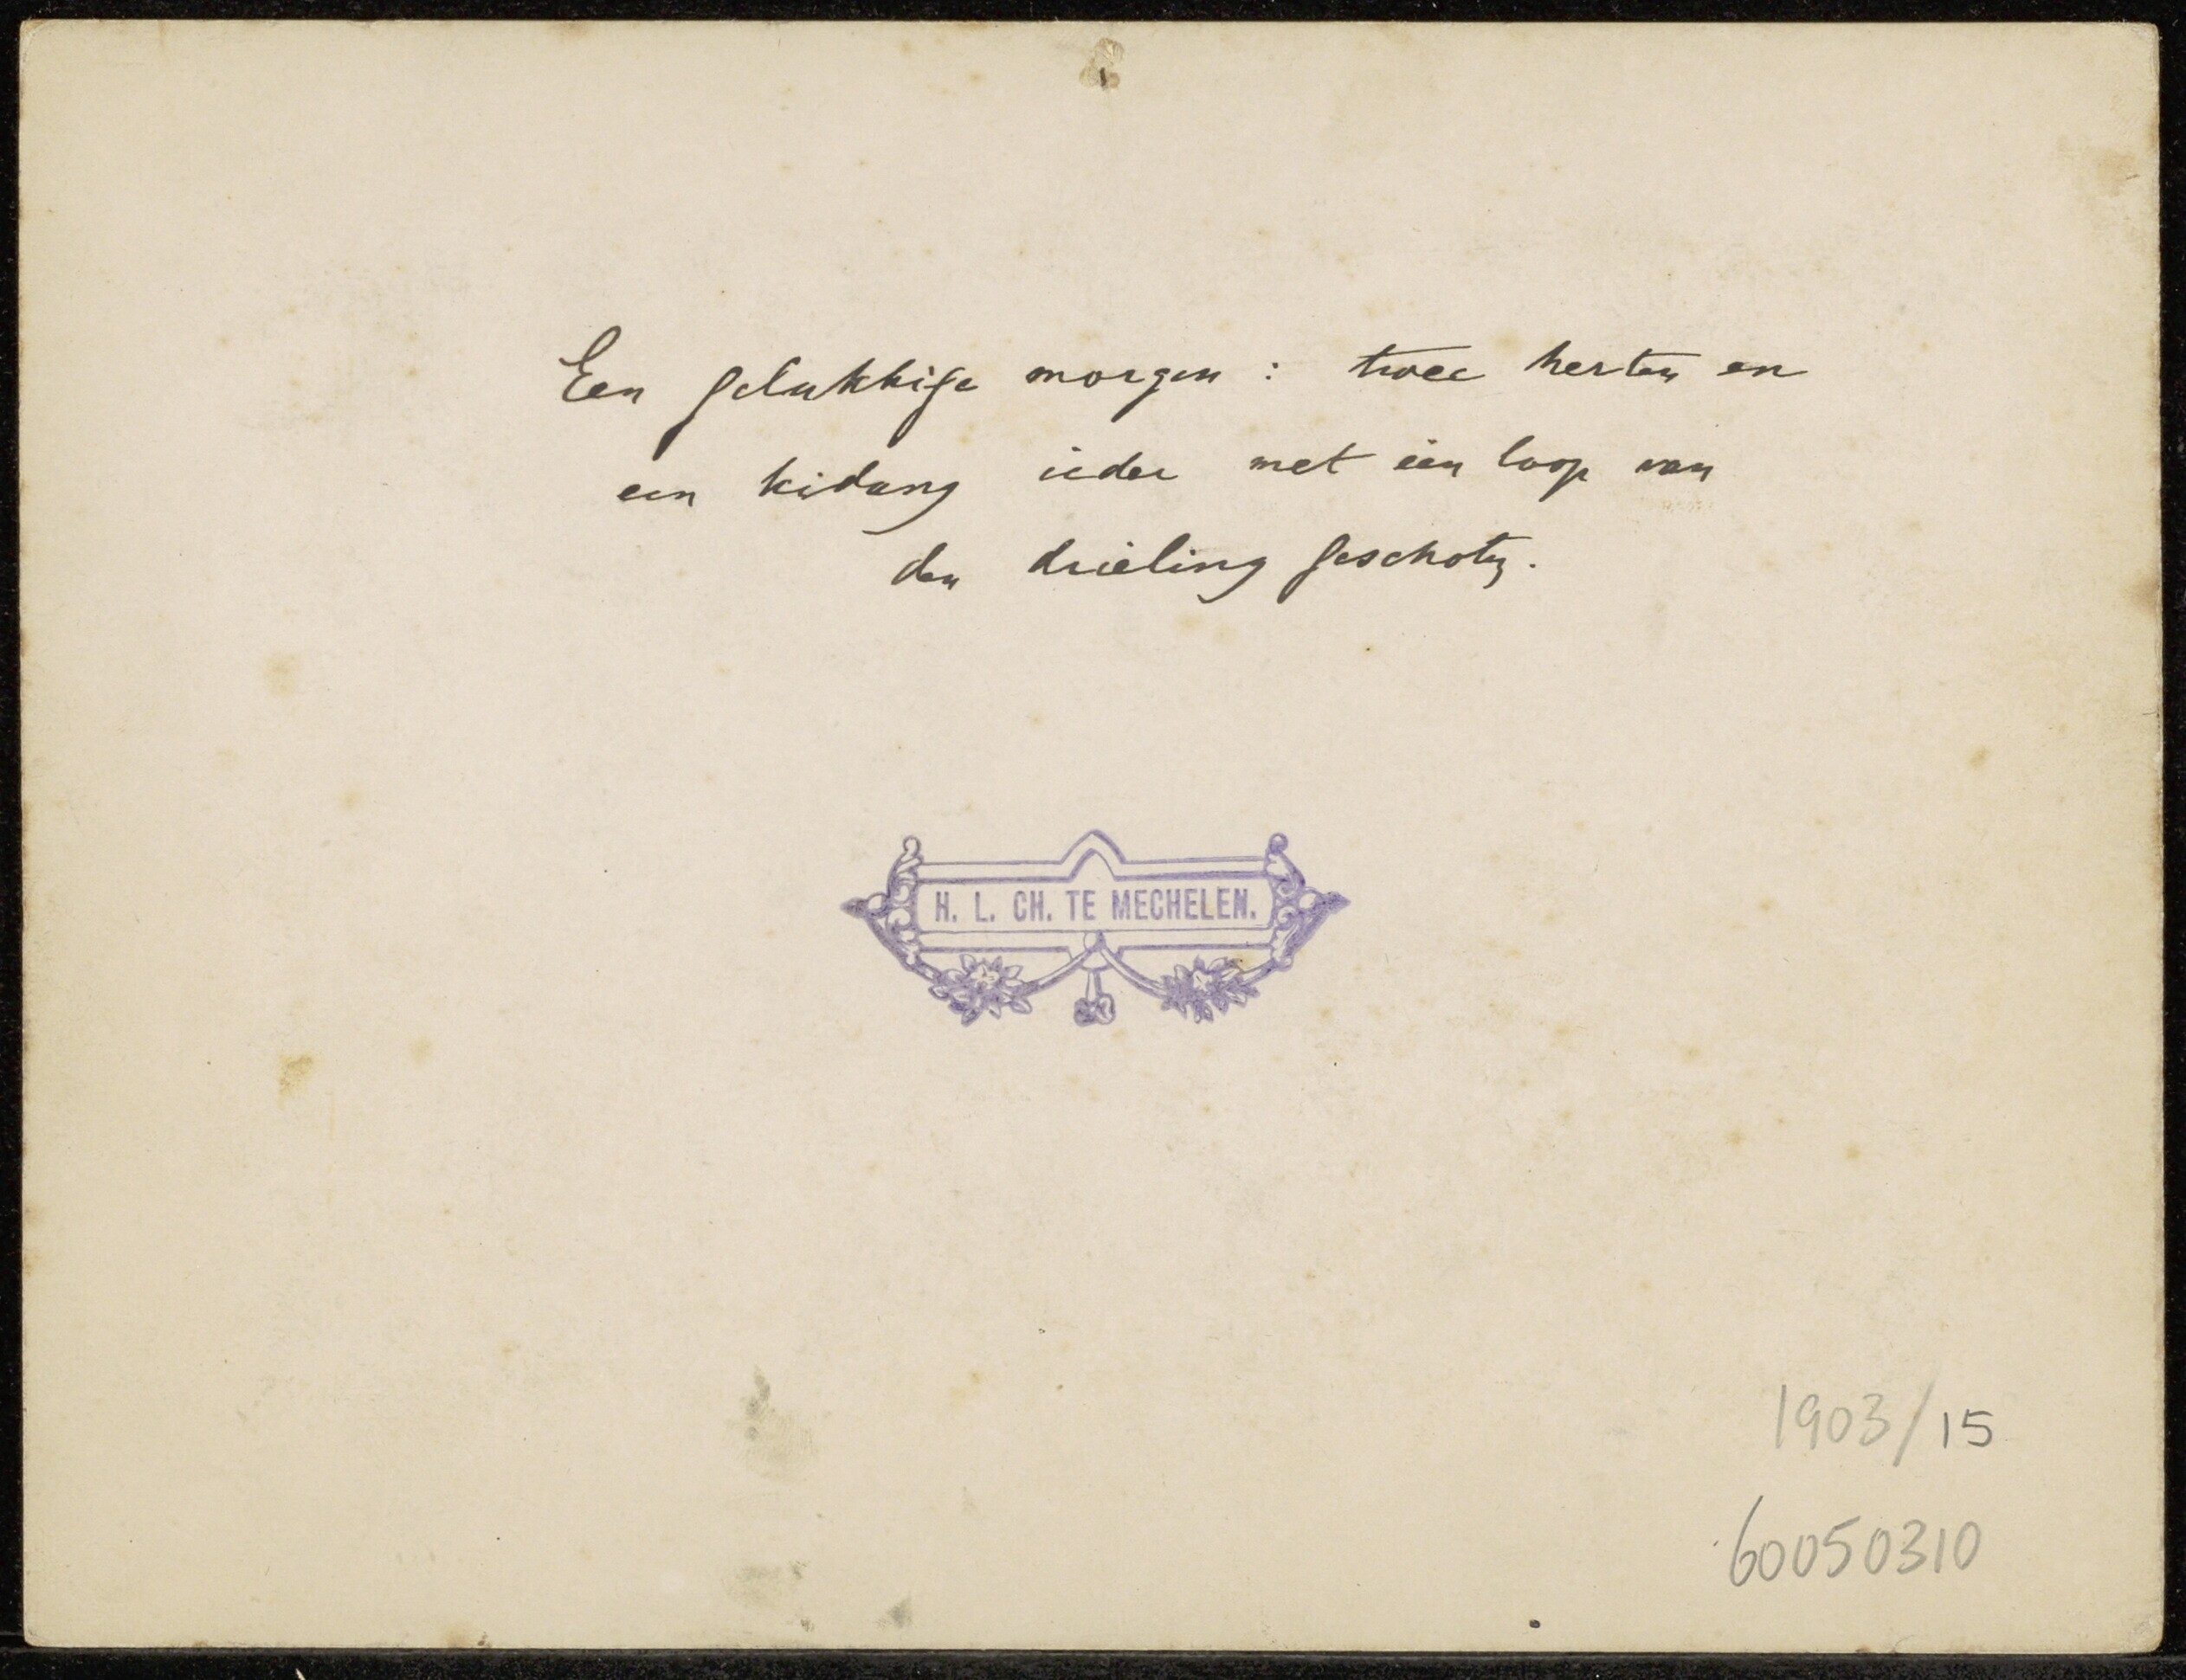 Een gelukkige morgen : twee herten en
een kidang ieder met één loop van
den drieling geschoten.
H. L. CH. TE MECHELEN.
1903/15
60050310